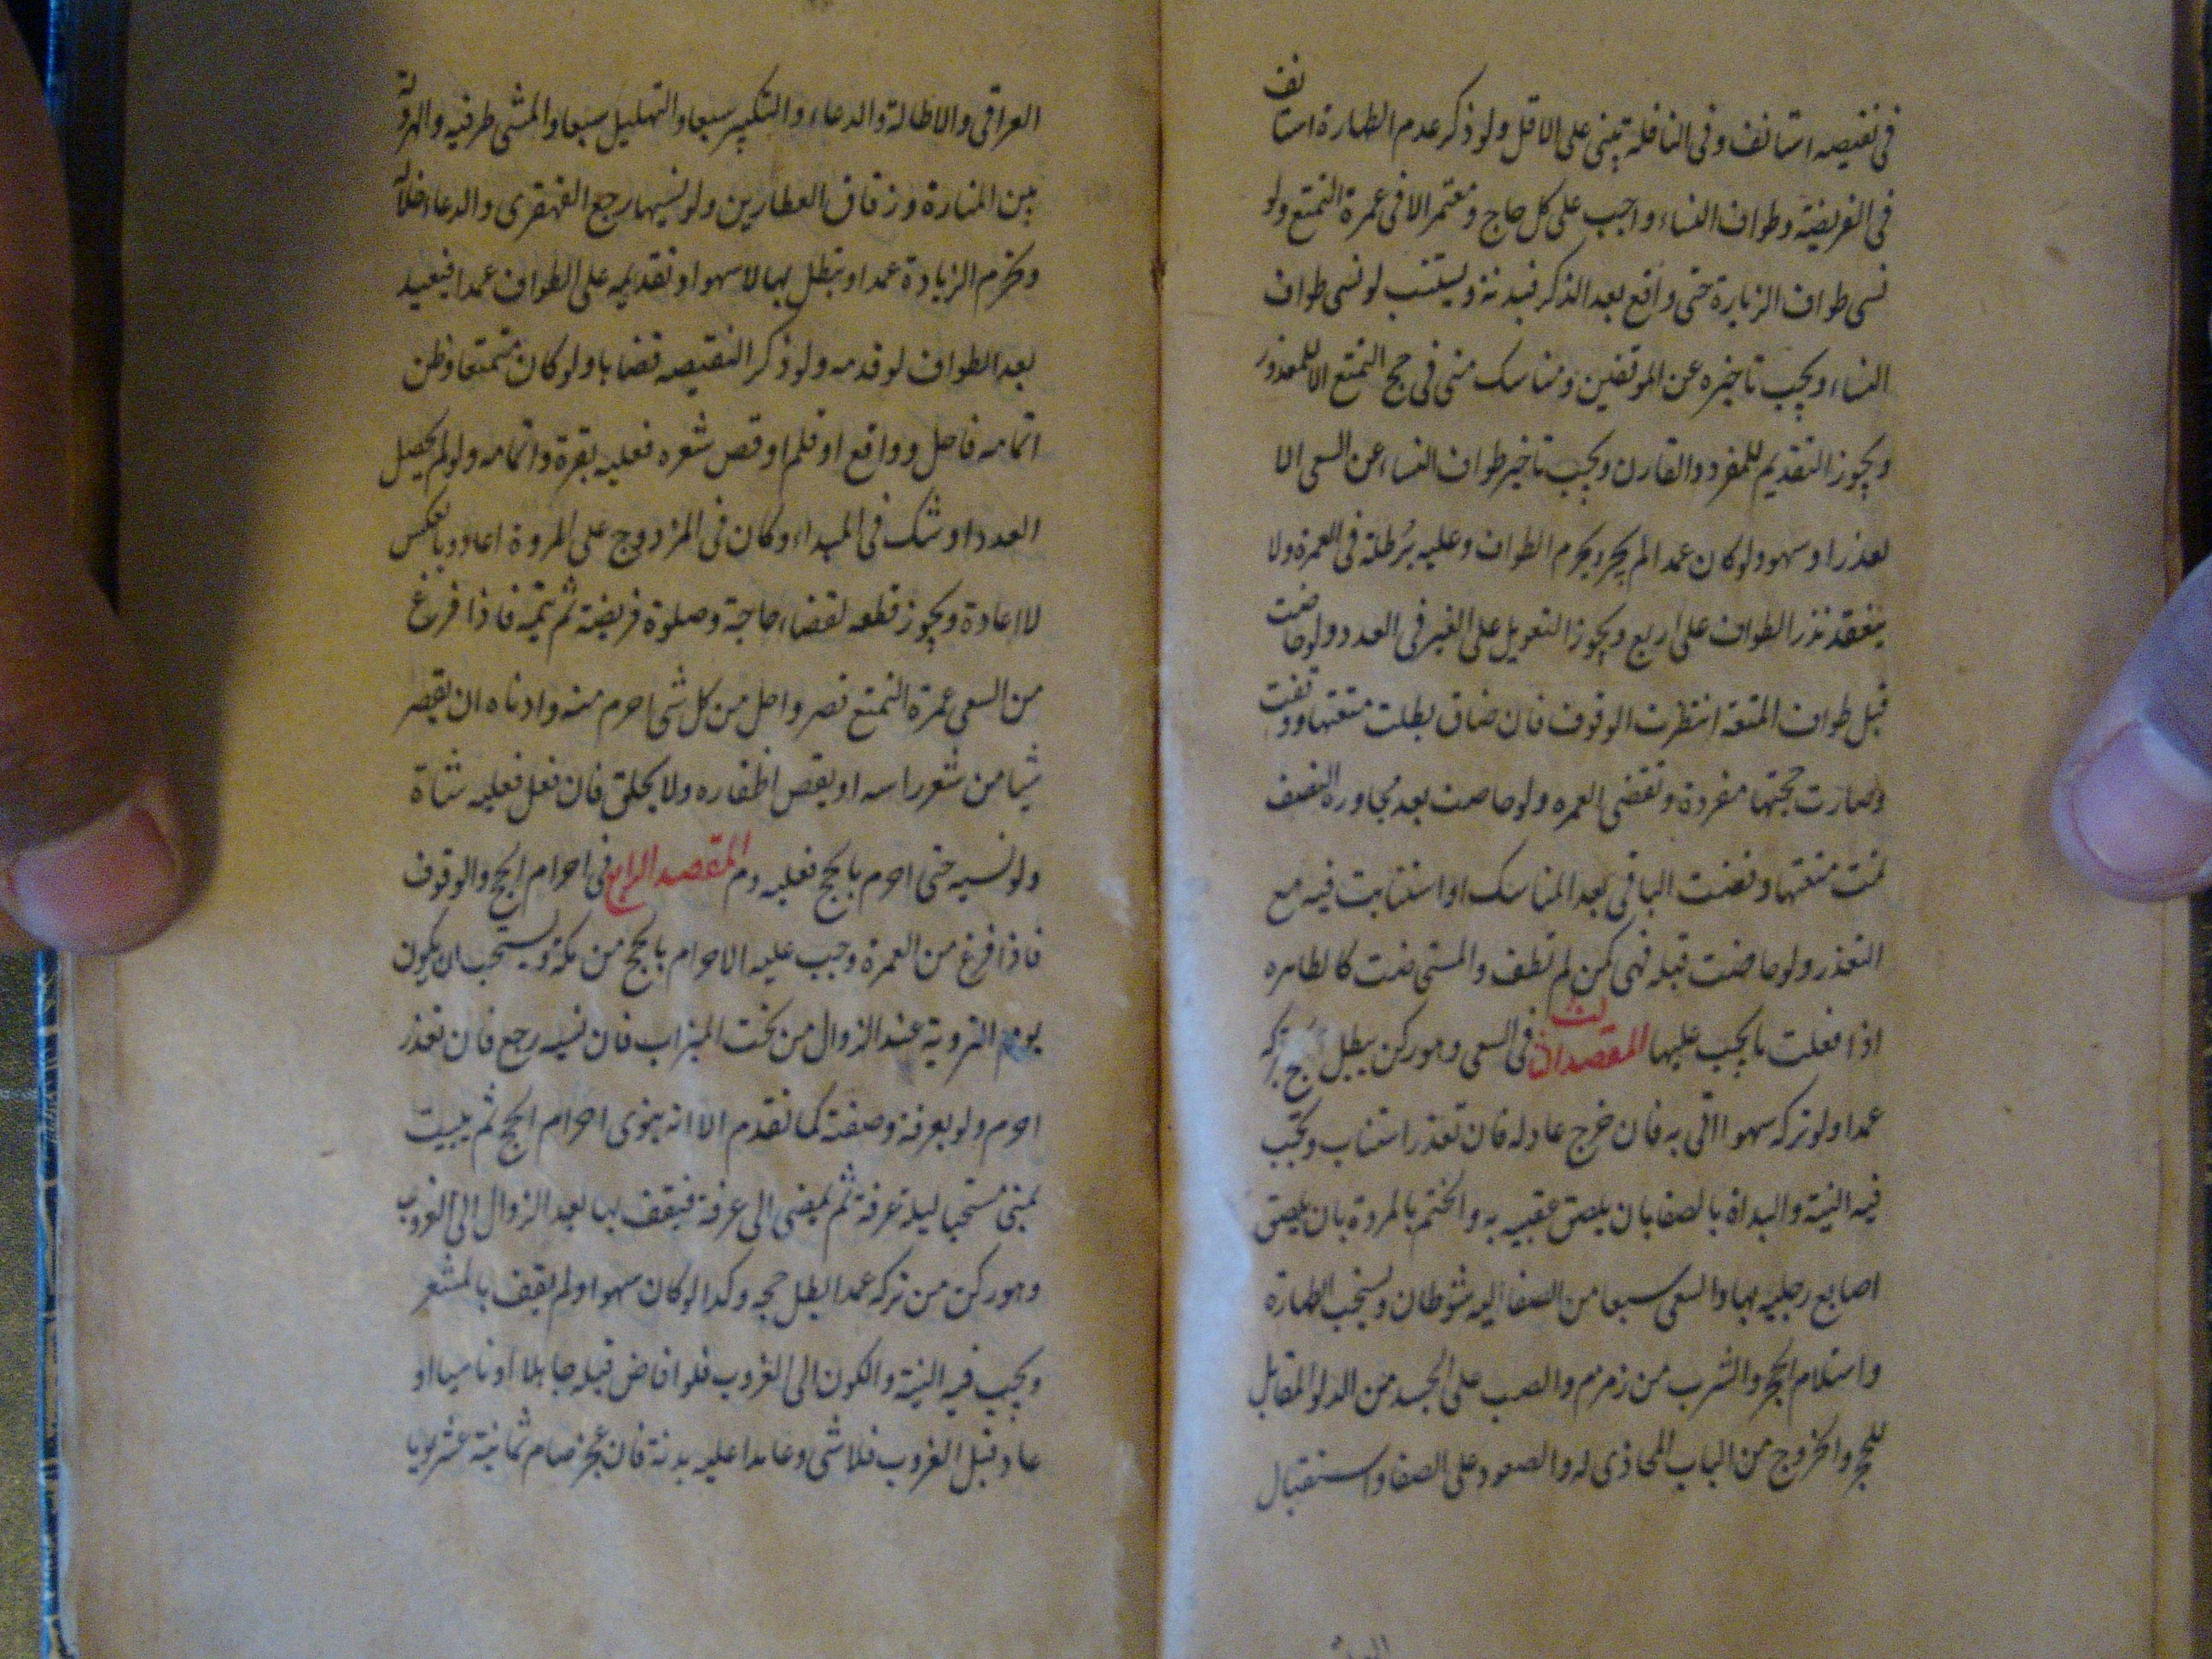 فى نقيصه استانف وفى النافلة يبنى على الاقل ولو ذكر عدم الطهارة استانف
فى الفريضة وطواف النساء واجب على كل حاج ومعتمر الا فى عمرة التمتع ولو
نسى طواف الزيارة حتى واقع بعد الذكر فبدنة ويستنيب لو نسى طواف
النساء ويجب تاخيره عن الموقفين ومناسك منى فى حج التمتع الا للمعذور
ويجوز التقديم للمفرد والقارن ويجب تاخير طواف النساء عن السعى الا
لعذر او سهو ولو كان عمدا لم يجز ويحرم الطواف وعليه برطلة فى العمرة ولا
ينعقد نذر الطواف على اربع ويجوز التعويل على الغير فى العدد ولو حاضت
قبل طواف المتعة انتظرت الوقوف فان ضاق بطلت متعتها ووقفت
وصارت حجتها مفردة وتقضى العمره ولو حاضت بعد مجاورة النصف
تمت متعتها وقضت الباقى بعد المناسك او استنابت فيه مع
التعذر ولو حاضت قبله فهى كمن لم تطف والمستحاضت كالطاهره
اذا فعلت ما يجب عليها المقصد الثالث فى السعى وهو ركن يبطل الحج بتركه
عمدا ولو تركه سهوا اتى به فان خرج عاد له فان تعذر استناب ويجب
فيه النية والبداة بالصفا بان يلصق عقبيه به والختم بالمروة بان يلصق
اصابع رجليه بها والسعى سبعا من الصفا اليه شوطان ويستحب الطهارة
واستلام الحجر والشرب من زمزم والصب على الجسد من الدلو المقابل
للحجر والخروج من الباب المحاذى له والصعود على الصفا واستقبال
العراقى والاطالة والدعاء والتكبير سبعا والتهليل سبعا والمشى طرفيه والهرولة
بين المنارة وزقاق العطارين ولو نسيها رجع القهقرى والدعاء خلاله
ويحرم الزيادة عمدا ويبطل بها لا سهوا وتقديمه على الطواف عمدا فيعيد
بعد الطواف لو قدمه ولو ذكر النقيصه قضاها ولو كان متمتعا وظن
اتمامه فاحل وواقع او قلم او قص شعره فعليه بقرة واتمامه ولو لم يحصل
العدد او شك فى المبداء وكان فى المزدوج على المروة اعاد وبالعكس
لا اعادة ويجوز قطعه لقضاء حاجة وصلوة فريضة ثم يتمه فاذا فرغ
من السعى عمرة التمتع قصر واحل من كل شى احرم منه وادناه ان يقصر
شيا من شعر راسه او يقص اظفاره ولا يحلق فان فعل فعليه شاة
ولو نسيه حتى احرم بالحج فعليه دم المقصد الرابع فى احرام الحج والوقوف
فاذا فرغ من العمرة وجب عليه الاحرام بالحج من مكة ويستحب ان يكون
يوم التروية عند الزوال من تحت الميزاب فان نسيه رجع فان تعذر
احرم ولو بعرفة وصفته كما تقدم الا انه ينوى احرام الحج ثم يبيت
بمنى مستحبا ليلة عرفة ثم يمضى الى عرفة فيقف بها بعد الزوال الى الغروب
وهو ركن من تركه عمدا بطل حجه وكذا لو كان سهوا ولم يقف بالمشعر
ويجب فيه النية والكون الى الغروب فلو افاض قبله جاهلا او ناسيا او
عاد قبل الغروب فلا شى وعامدا عليه بدنة فان عجز صام ثمانية عشر يوما